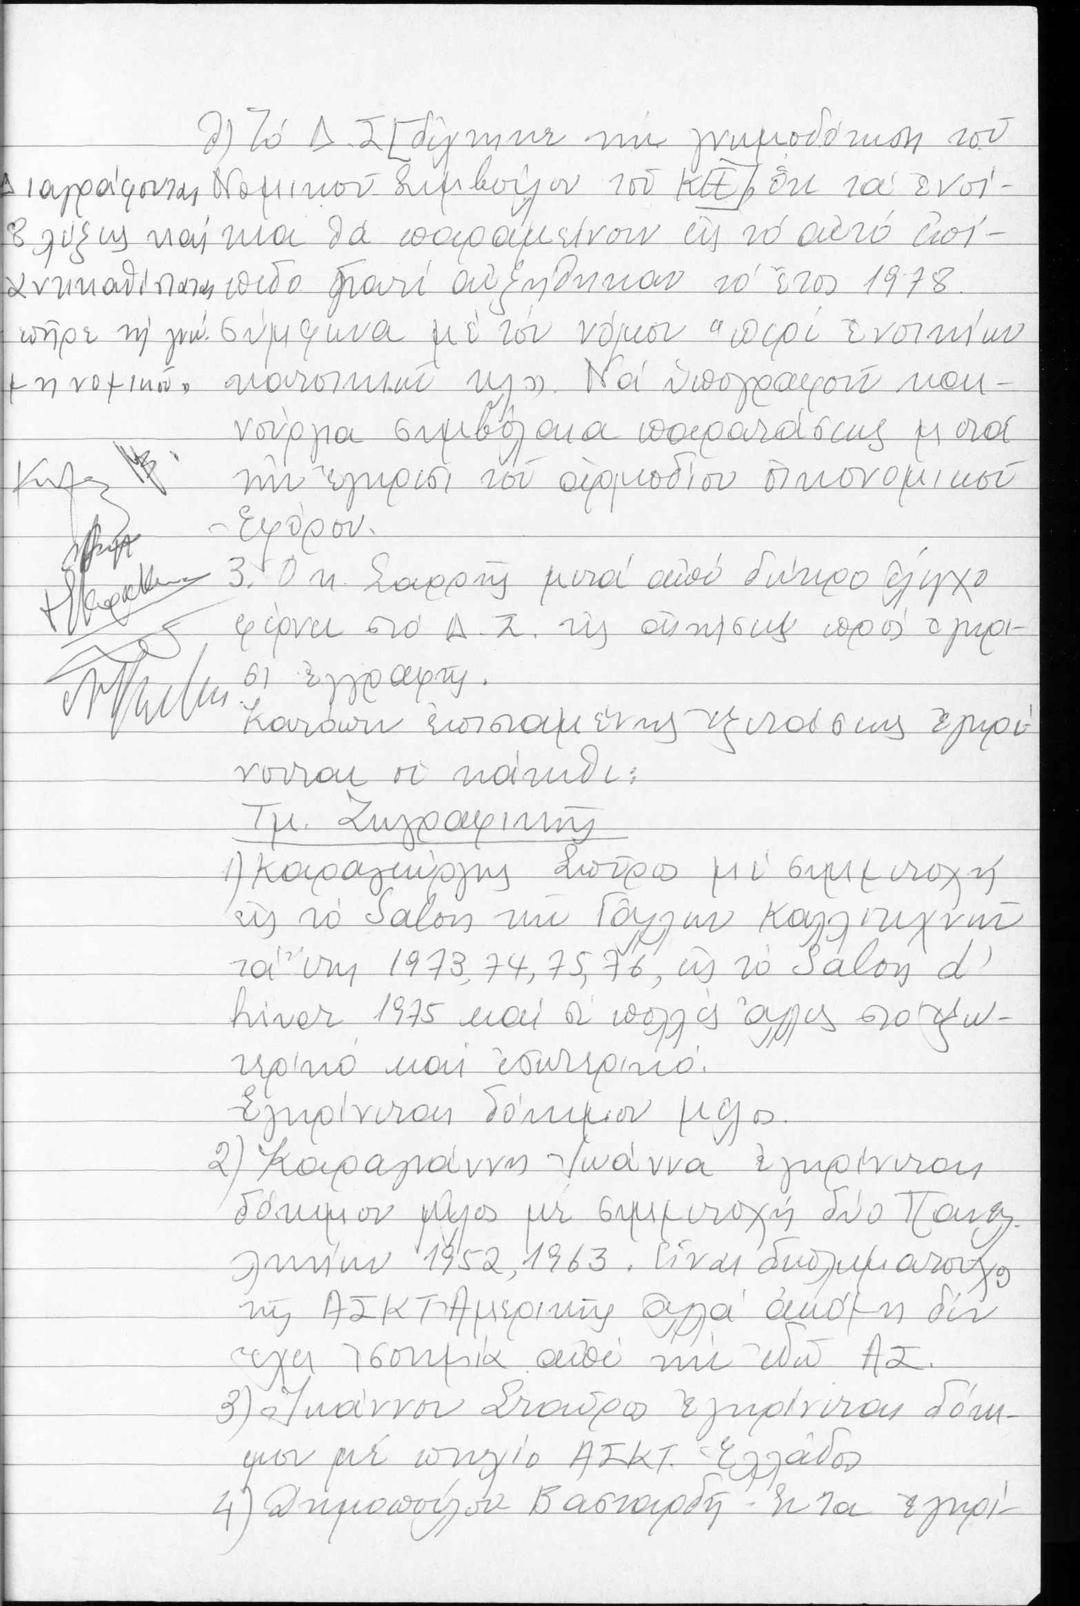 δ) Τό Δ.Σ [δέχτηκε τήν γνωμοδότηση τοῦ
Νομικοῦ Συμβούλου τοῦ ΚΕΕ], ὅτι τά ἐνοί-
κια θά παραμείνουν εἰς τό αὐτό ἐπί-
πεδο γιατί αὐξήθηκαν τό ἔτος 1978
σύμφωνα μέ τόν νόμον "περί ἐνοικίων
κατοικιῶν κλπ". Νά ὑπογραφοῦν και-
νούργια συμβόλαια παρατάσεως μετά
τήν ἔγκριση τοῦ ἁρμοδίου οἰκονομικοῦ
Ἐφόρου.
Διαγράφονται
3 λέξεις καί
ἀντικαθίσταται
"πῆρε τή γνώ-
μη νομικοῦ"
3. Ὁ κ. Σαρρῆς μετά ἀπό δεύτερο ἔλεγχο
φέρνει στό Δ.Σ. τίς αἰτήσεις πρός ἔγκρι-
ση ἐγγραφῆς.
Κατόπιν ἐπισταμένης ἐξετάσεως ἐγκρί-
νονται οἱ κάτωθι:
Τμ. Ζωγραφικῆς
1) Καραγεώργης Σπῦρος μέ συμμετοχή
εἰς τό Salon τῶν Γάλλων Καλλιτεχνῶν
τά ἔτη 1973, 74, 75, 76, εἰς τό Salon d'
hiver 1975 καί σέ πολλές ἄλλες στό ἐξω-
τερικό καί ἐσωτερικό.
Ἐγκρίνεται δόκιμον μέλος.
2) Καραγιάννη Ἰωάννα ἐγκρίνεται
δόκιμον μέλος μέ συμμετοχή δύο Πανελ-
ληνίων 1952, 1963. Εἶναι διπλωματοῦχος
τῆς ΑΣΚΤ Ἀμερικῆς ἀλλά ἀκόμη δέν
ἔχει ἰσοτιμία ἀπό τήν ἐδῶ ΑΣ.
3) Ἰωάννου Σταῦρος ἐγκρίνεται δόκι-
μον μέ πτυχίο ΑΣΚΤ Ἑλλάδος
4) Δημοπούλου Βασταρδῆ ἐγκρί-